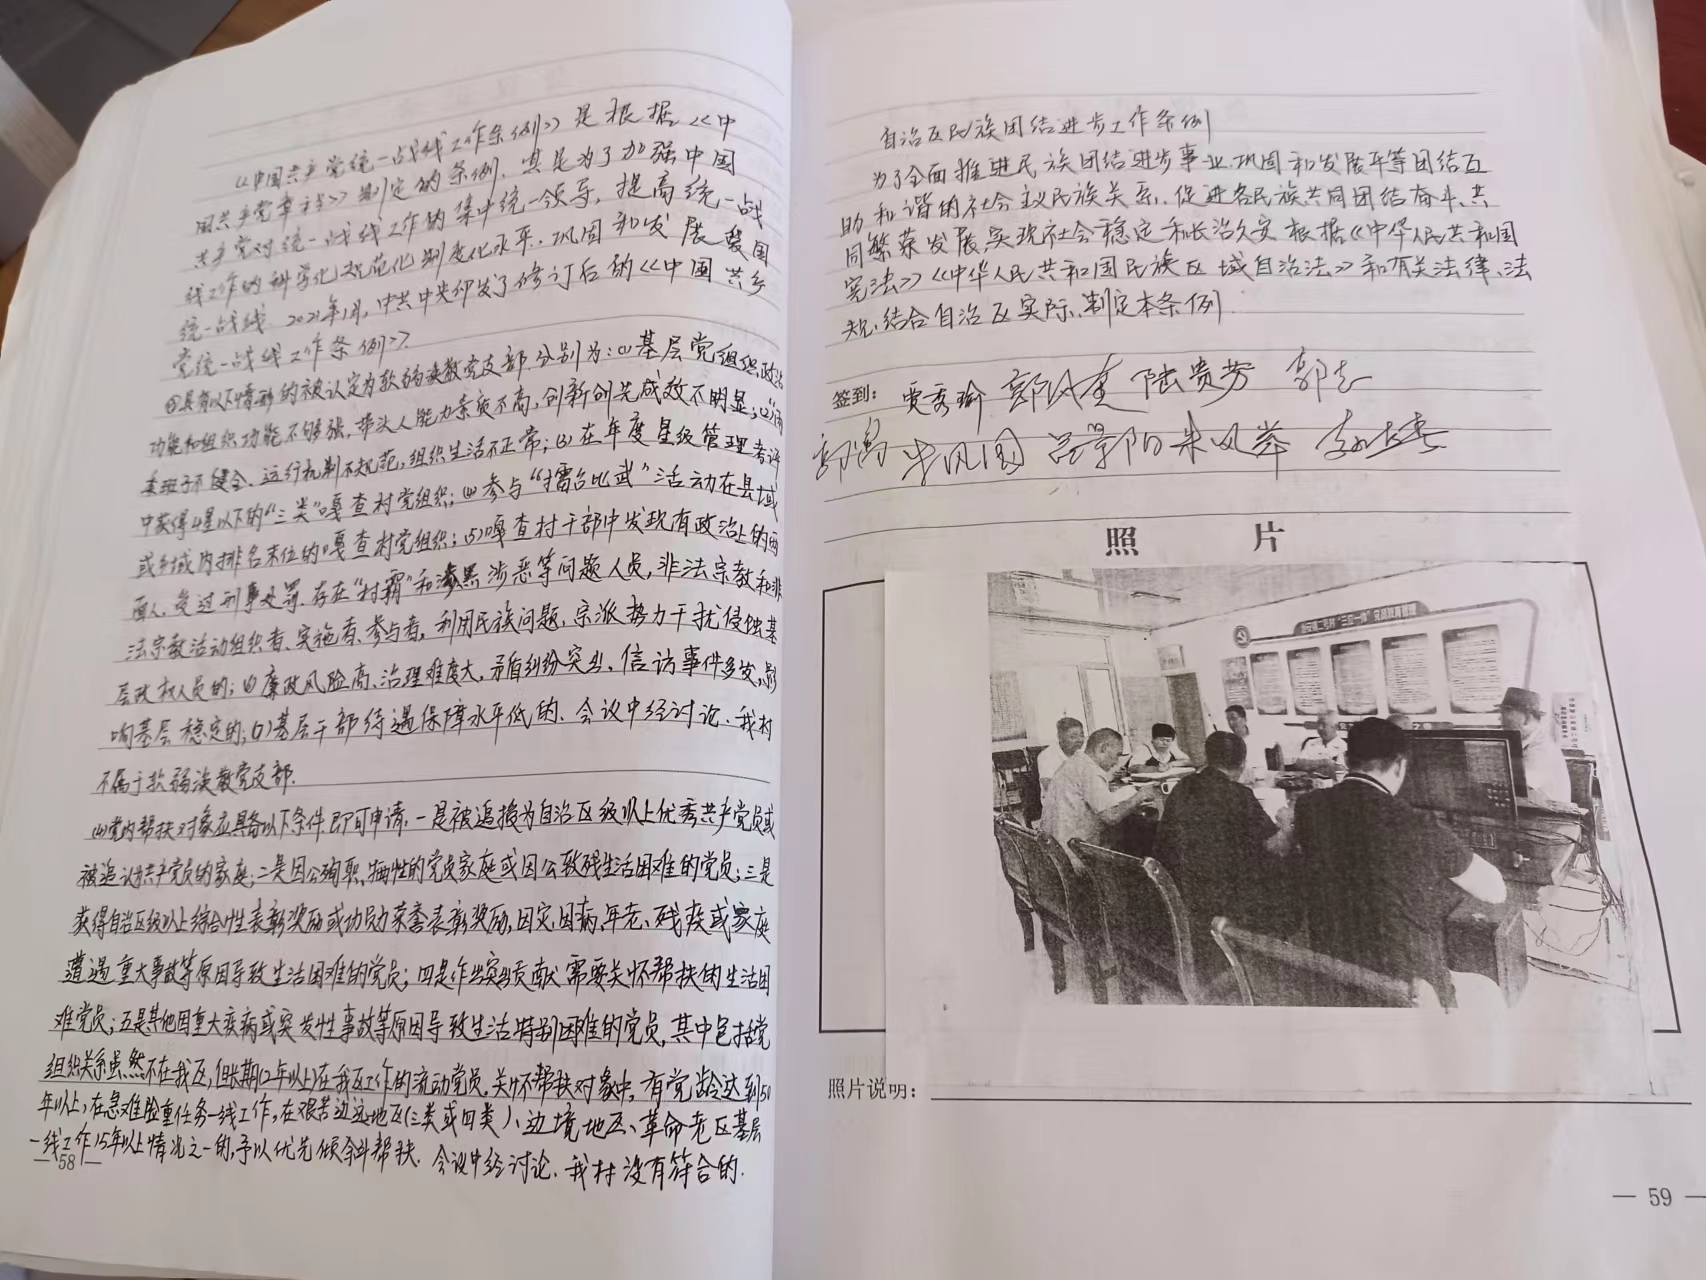 《中国共产党统一战线工作条例》是根据《中
国共产党章程》制定的条例,其是为了加强中国
共产党对统一战线工作的集中统一领导,提高统一战
线工作的科学化规范化制度化水平,巩固和发展爱国
统一战线 2021年1月,中共中央印发了修订后的《中国共产
党统一战线工作条例》
具有以下情形的被认定为软弱涣散党支部分别为:(1)基层党组织政治
功能和组织功能不够强,带头人能力素质不高,创新创先成效不明显;(2)
委班子不健全、运行机制不规范,组织生活不正常;(3)在年度星级管理考评
中获得4星以下的"三类"嘎查村党组织;(4)参与"擂台比武"活动在县域
或乡域内排名末位的嘎查村党组织;(5)嘎查村干部中发现有政治上的两
面人、受过刑事处罚、存在"村霸"和涉黑涉恶等问题人员,非法宗教和非
法宗教活动组织者、实施者、参与者,利用民族问题,宗派势力干扰侵蚀基
层政权人员的;(6)廉政风险高、治理难度大,矛盾纠纷突出、信访事件多发,影
响基层稳定的;(7)基层干部待遇保障水平低的、会议中经讨论、我村
不属于软弱涣散党支部.
党内帮扶对象应具备以下条件即可申请,一是被追授为自治区级以上优秀共产党员或
被追认为共产党员的家庭;二是因公殉职、牺牲的党员家庭或因公致残生活困难的党员;三是
获得自治区级以上综合性表彰奖励或功勋荣誉表彰奖励,因灾、因病、年老、残疾或家庭
遭遇重大事故等原因导致生活困难的党员;四是作出突出贡献需要关怀帮扶的生活困
难党员;五是其他因重大疾病或突发性事故等原因导致生活特别困难的党员,其中包括党
组织关系虽然不在我区,但长期(2年以上)在我区工作的流动党员.关怀帮扶对象中,有党龄达到50
年以上,在急难险重任务一线工作,在艰苦边远地区(三类或四类)、边境地区、革命老区基层
一线工作15年以上情况之一的,予以优先倾斜帮扶. 会议中经讨论、我村没有符合的.
— 58 —
自治区民族团结进步工作条例
为了全面推进民族团结进步事业,巩固和发展平等团结互
助和谐的社会主义民族关系,促进各民族共同团结奋斗、共
同繁荣发展,实现社会稳定和长治久安 根据《中华人民共和国
宪法》《中华人民共和国民族区域自治法》和有关法律、法
规,结合自治区实际,制定本条例.
签到: 贾秀瑜 陆贵芳
吕景阳 朱凤举
照 片
照片说明:
— 59 —